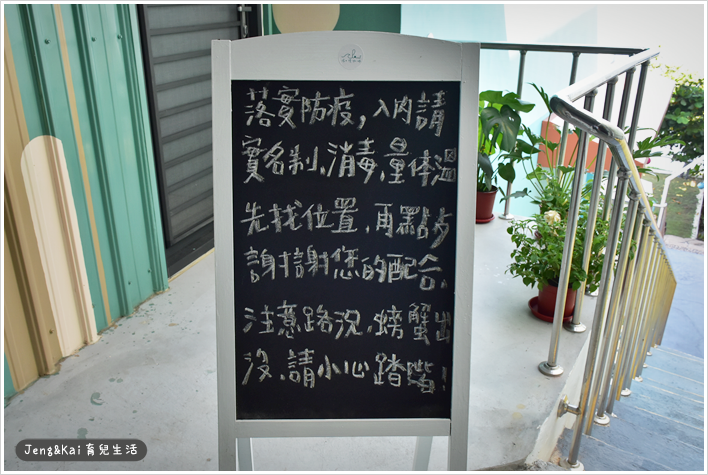 落實防疫,入內請
實名制、消毒、量体溫
先找位置,再點
謝謝您的配合、
注意路況,螃蟹出
沒、請小心踏階!
Jeng&Kai 育兒生活